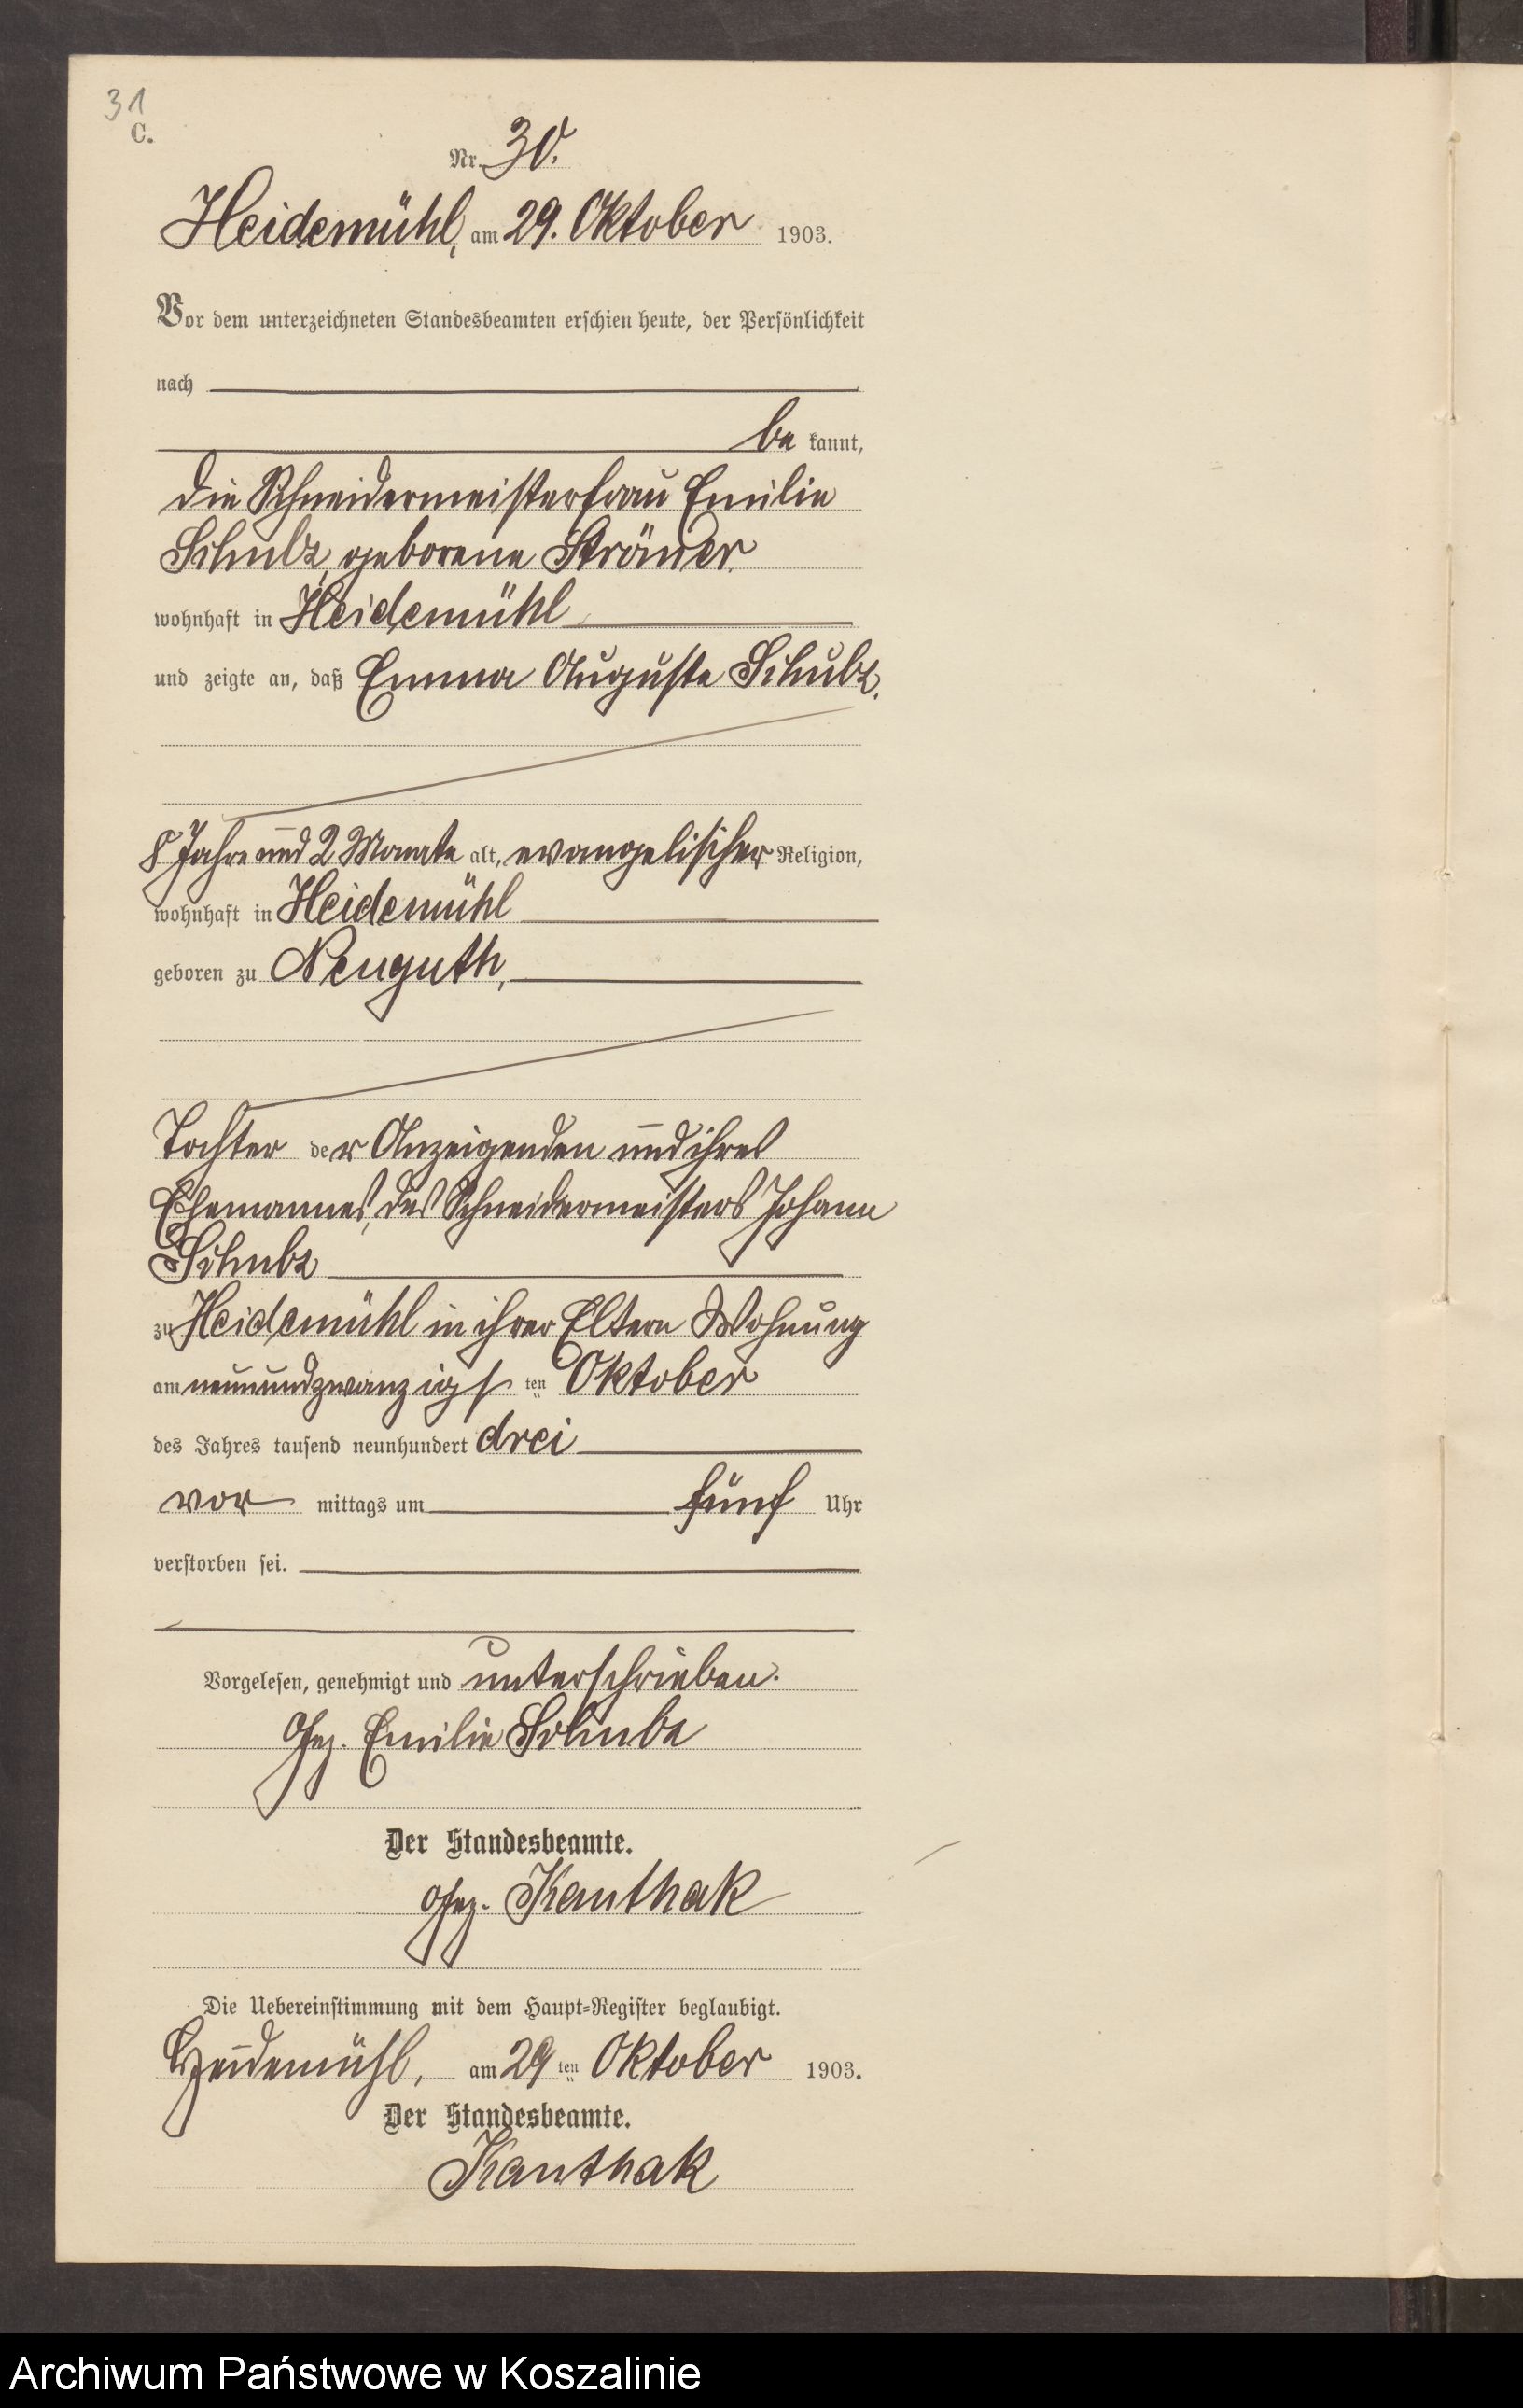 31
C.
Nr. 30.
Heidemühl, am 29. Oktober 1903.
Vor dem unterzeichneten Standesbeamten erschien heute, der Persönlichkeit
nach
be kannt,
die Schneidermeisterfrau Emilie
Schulz, geborene Ströwer
wohnhaft in Heidemühl
und zeigte an, daß Emma Auguste Schulz,
8 Jahre und 2 Monate alt, evangelischer Religion,
wohnhaft in Heidemühl
geboren zu Neuguth,
Tochter der Anzeigenden und ihres
Ehemannes, des Schneidermeisters Johann
Schulz
zu Heidemühl in ihrer Eltern Wohnung
am neunundzwanzigs ten Oktober
des Jahres tausend neunhundert drei
vor mittags um fünf Uhr
verstorben sei.
Vorgelesen, genehmigt und unterschrieben.
Gez. Emilie Schulz
Der Standesbeamte.
Gez. Kanthak
Die Uebereinstimmung mit dem Haupt-Register beglaubigt.
Heidemühl, am 29 ten Oktober 1903.
Der Standesbeamte.
Kanthak
Archiwum Państwowe w Koszalinie